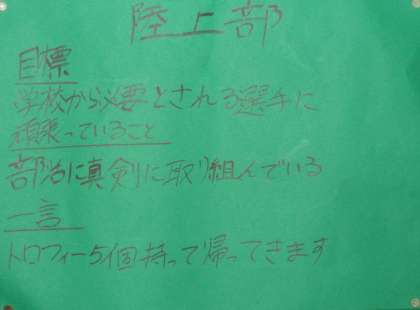 陸上部
目標
学校から必要とされる選手に
頑張っていること
部活に真剣に取り組んでいる
一言
トロフィー5個持って帰ってきます